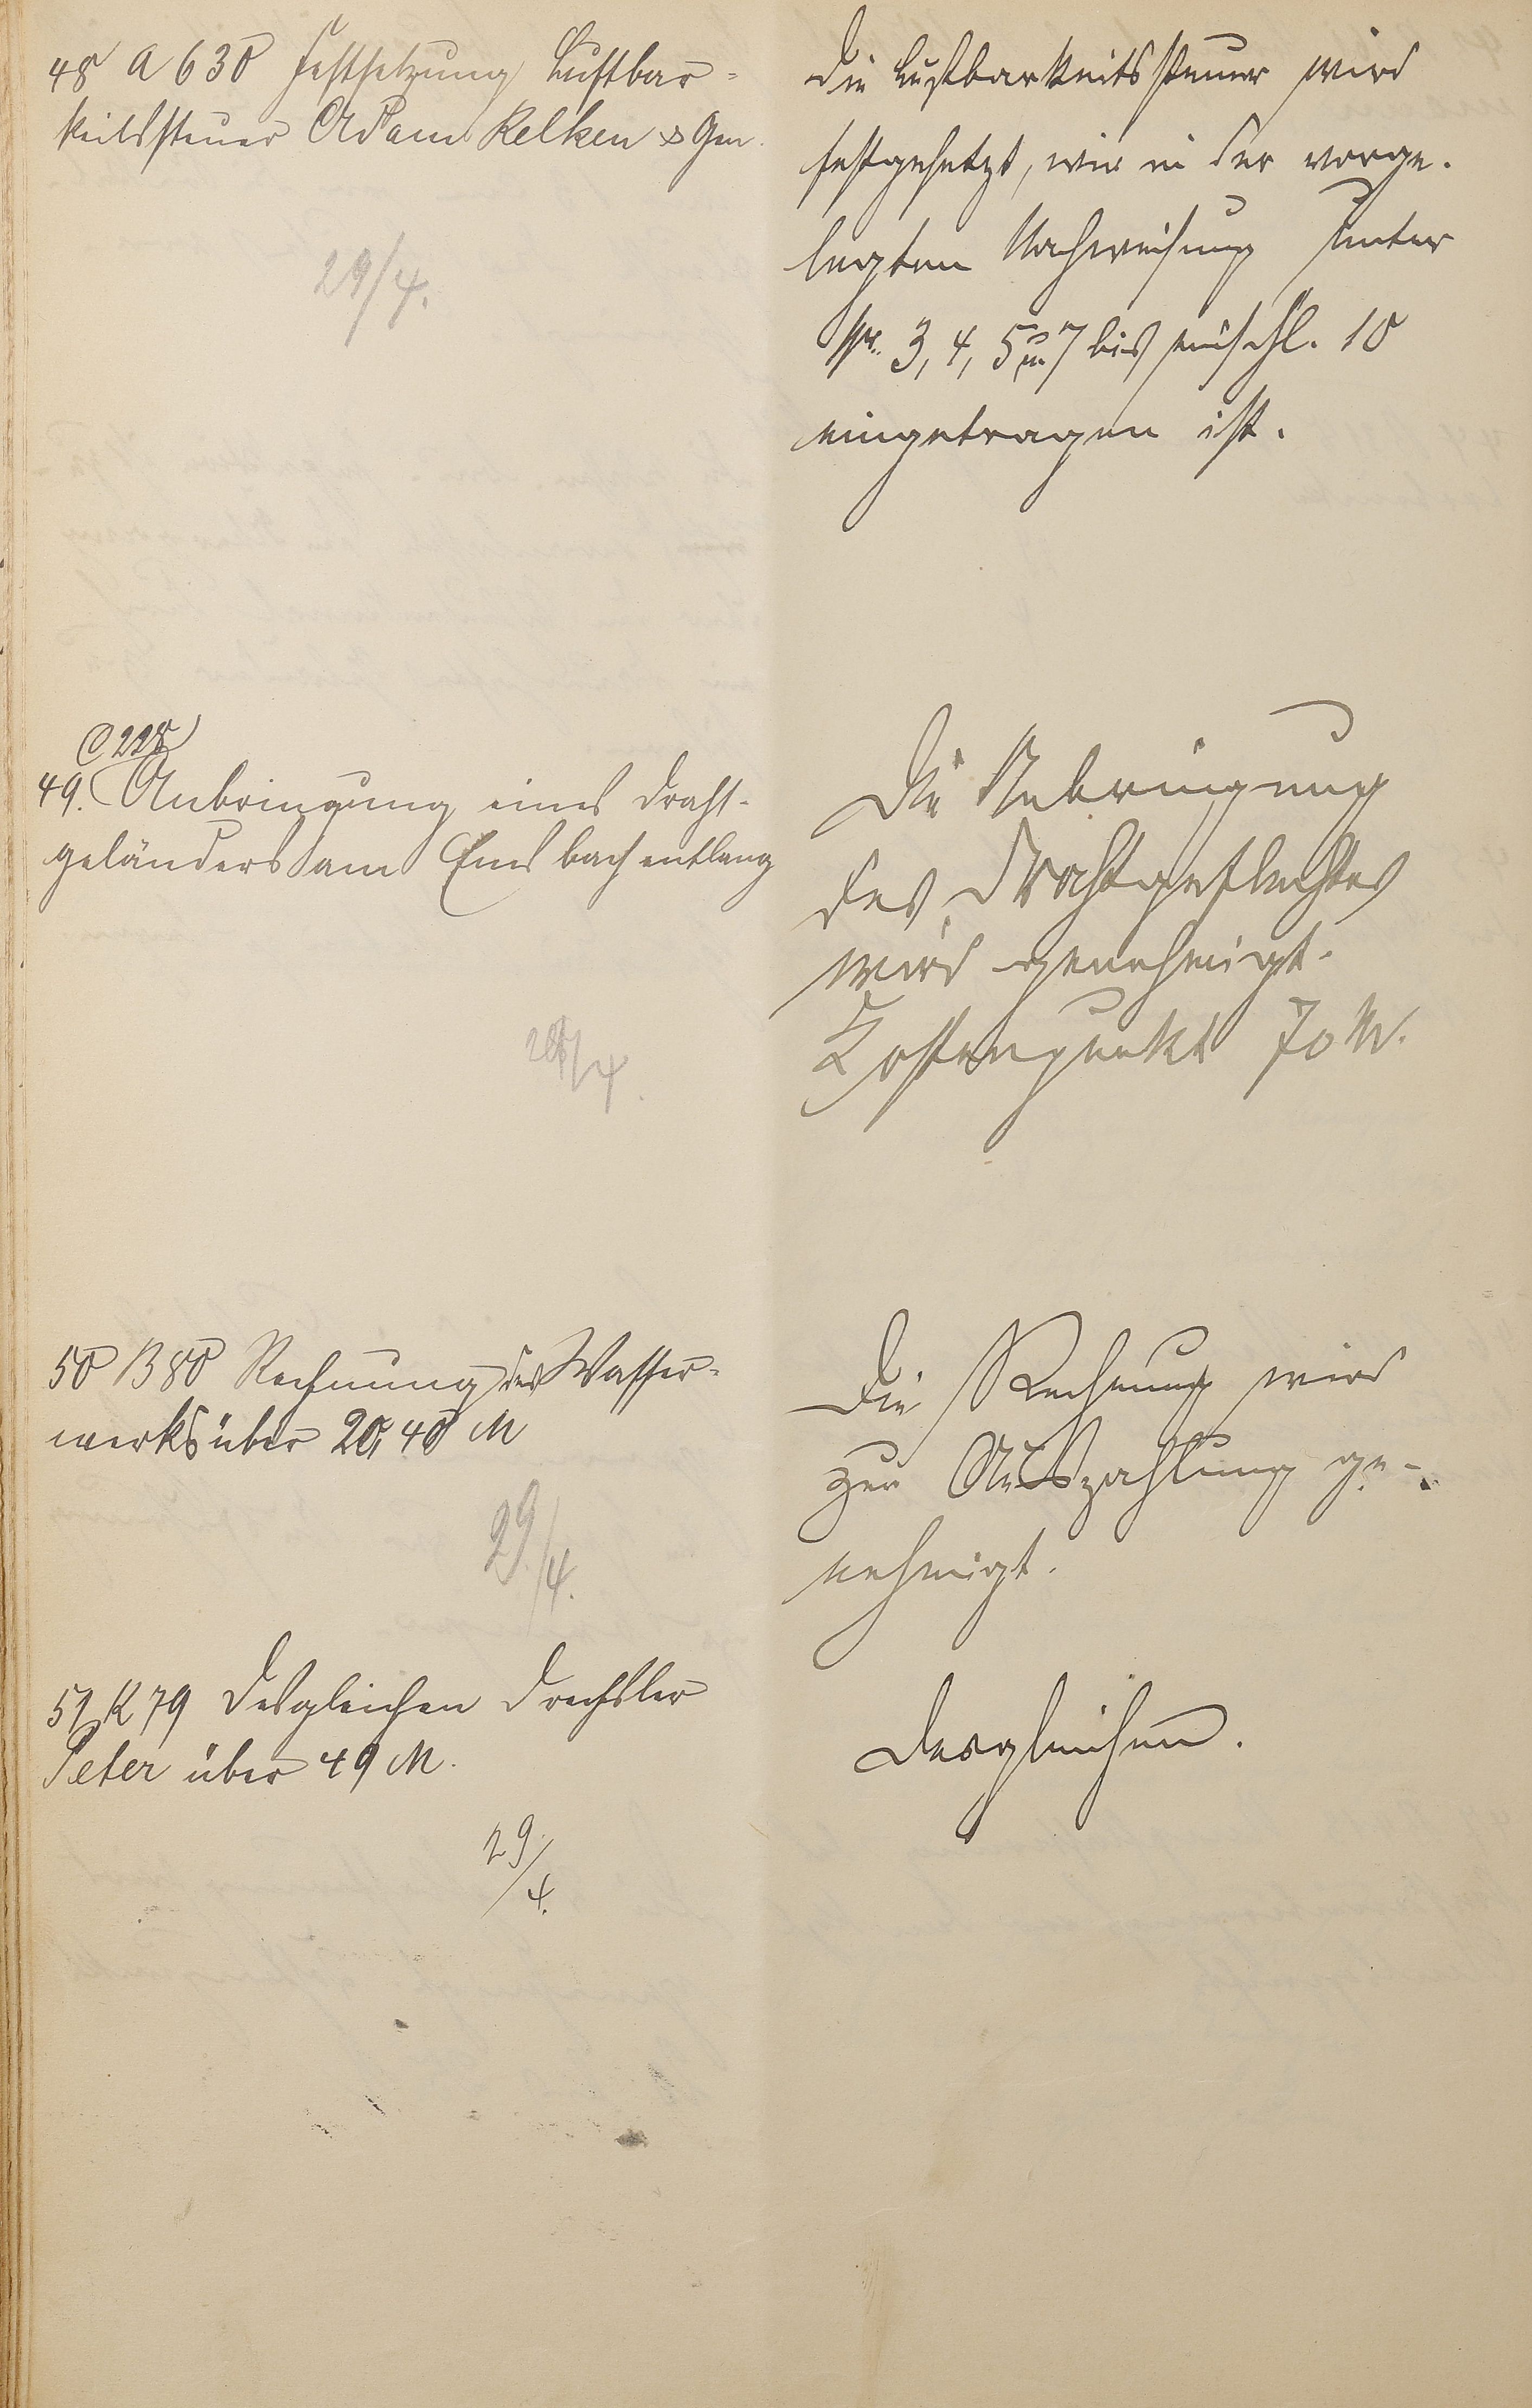 48 A 630 Festsetzung Lustbar-
keitssteuer Adam Relken & Gen.
29/4.
Die Lustbarkeitssteuer wird
festgesetzt, wie in der vorge-
legten Nachweisung unter
3, 4, 5 u. 7 bis einschl. 10
eingetragen ist.
C 228
49. Anbringung eines Draht-
geländers am Emsbach entlang
29/4.
Die Anbringung
des Drahtgeflechtes
wird genehmigt.
Kostenpunkt 70 M.
50 B 80 Rechnung des Wasser-
werks über 20,40 M
29/4.
Die Rechnung wird
zur Auszahlung ge-
nehmigt.
51 K 79 Desgleichen Drechsler
Peter über 49 M.
29/4.
Desgleichen.